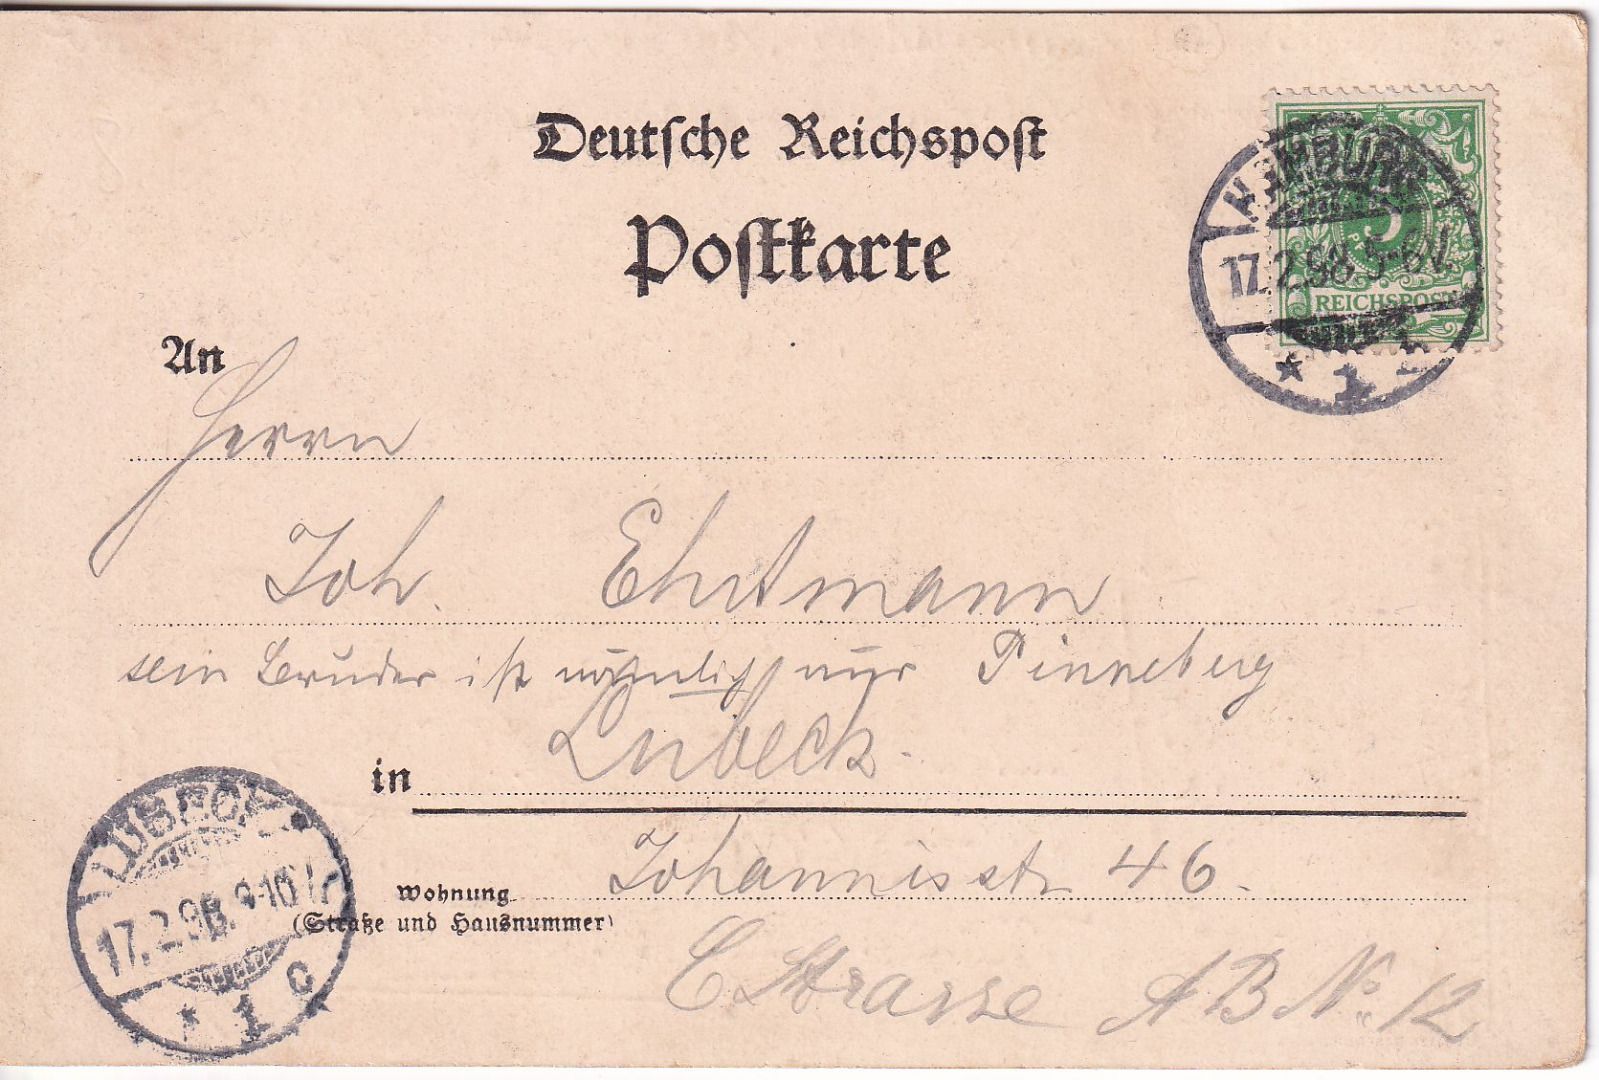 Deutsche Reichspost
Postkarte
HAMBURG
17.2.98.5-6V.
* 1 h.
5
REICHSPOST
An
Herrn
Joh. Ehrtmann
sein Bruder ist nämlich nur Pinneberg
Lübeck.
in
LÜBECK
17.2.98.9-10V.
* 1 c
Johannisstr 46.
Wohnung
(Straße und Hausnummer)
E Strasse AB No. 12